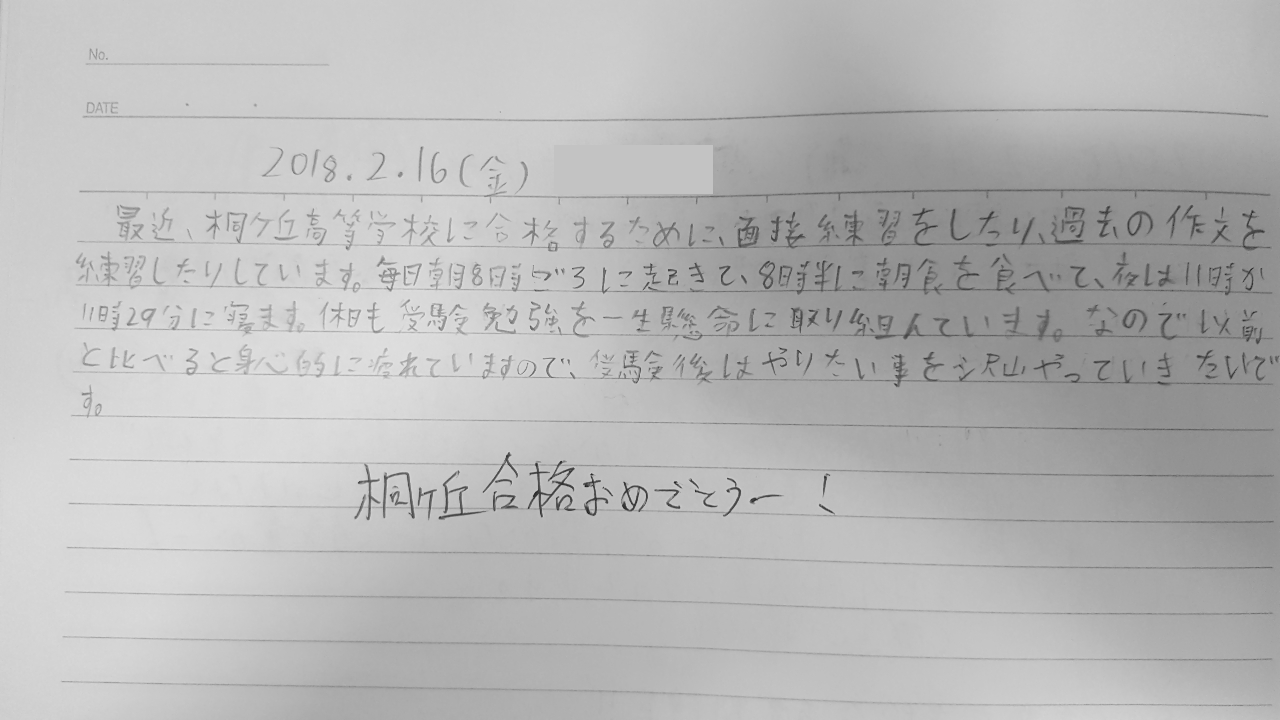 No.
DATE
2018.2.16(金)
最近、桐ケ丘高等学校に合格するために、面接練習をしたり、過去の作文を
練習したりしています。毎日朝8時ごろに起きて、8時半に朝食を食べて、夜は11時か
11時29分に寝ます。休日も受験勉強を一生懸命に取り組んでいます。なので以前
と比べると身心的に疲れていますので、受験後はやりたい事を沢山やっていきたいで
す。
桐ケ丘合格おめでとうー!